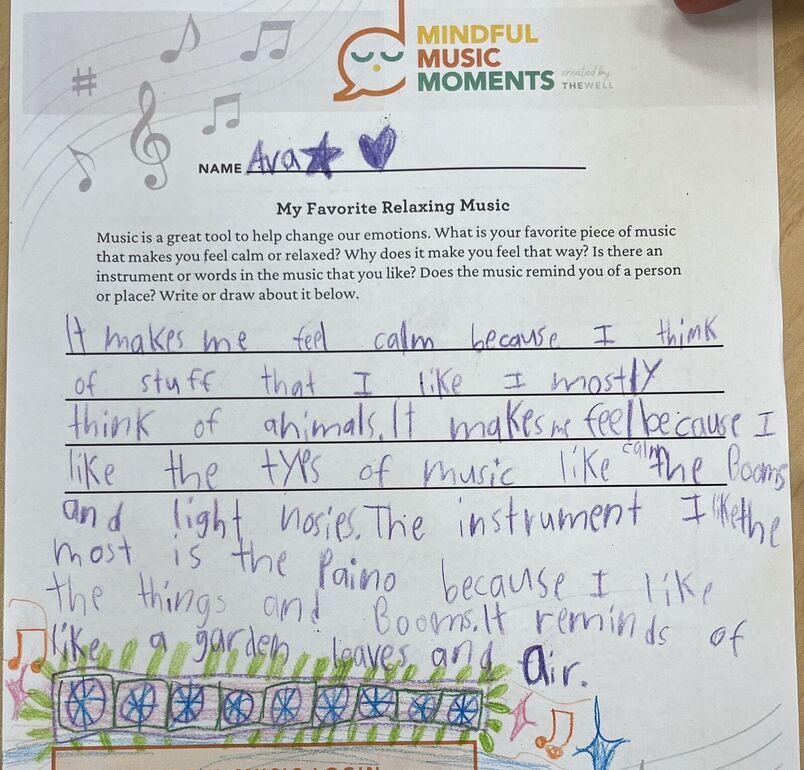 MINDFUL
MUSIC
MOMENTS
created by
THE WELL
NAME Ava
My Favorite Relaxing Music
Music is a great tool to help change our emotions. What is your favorite piece of music
that makes you feel calm or relaxed? Why does it make you feel that way? Is there an
instrument or words in the music that you like? Does the music remind you of a person
or place? Write or draw about it below.
It makes me feel calm because I think
of stuff that I like I mostly
think of animals. It makes me feel because I
calm
like the typs of music like the Booms
and light nosies. The instrument I like the
most is the Paino because I like
the things and Booms. It reminds of
like a garden leaves and air.
MUSIC LOGIN